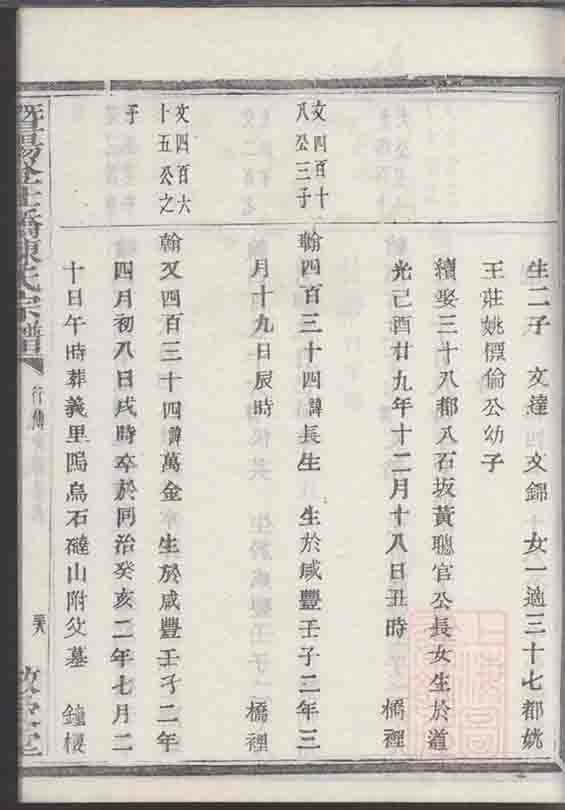 生二子 文達 文錦 女一適三十七都姚
王莊姚儦倫公幼子
續娶三十八都八石坂黃聰官公長女生於道
光己酉廿九年十二月十八日丑時 橋裡
文四百十
八公三子
翰四百三十四諱長生 生於咸豐壬子二年三
月十九日辰時 橋裡
文四百六
十五公之
子
翰又四百三十四諱萬金 生於咸豐壬子二年
四月初八日戌時卒於同治癸亥二年七月二
十日午時葬義里隖烏石磽山附父墓 鐘樓
暨陽 橋陳氏宗譜 行傳